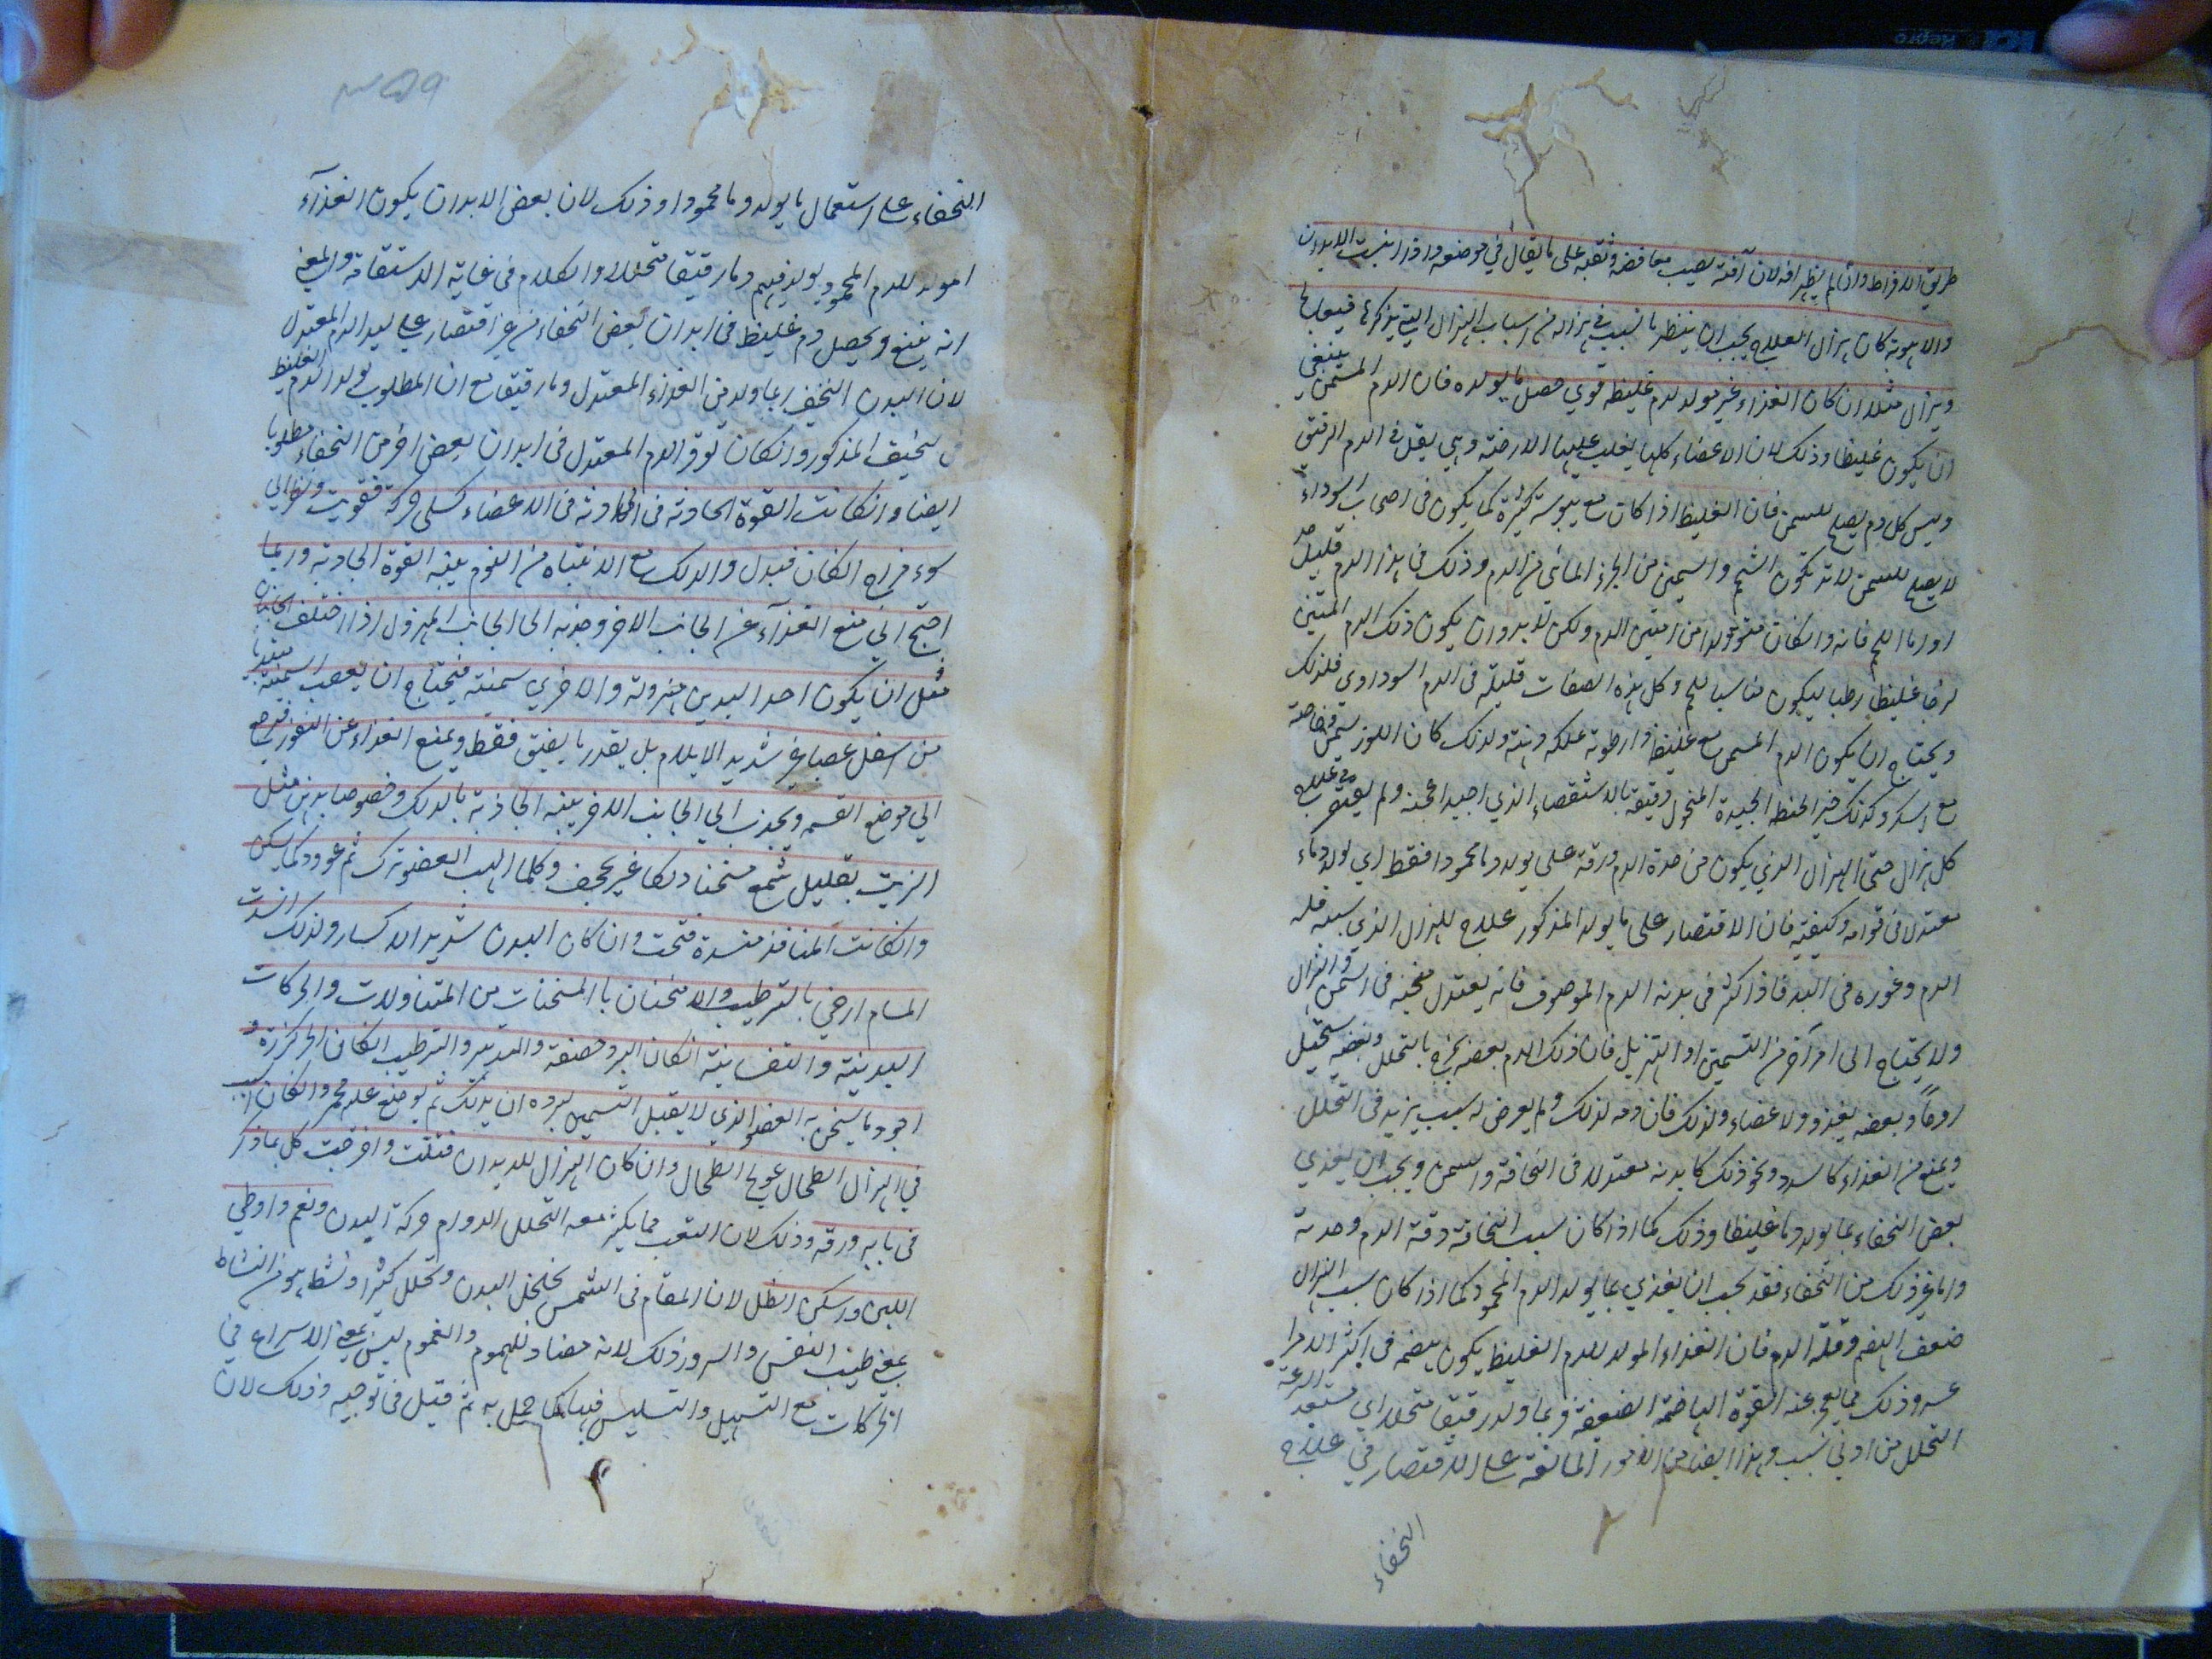 طريق الافراط وان لم يظهر افة لان آفته يصيب مغافضة وثقبه على ما يقال في موضعه واذا
والاهوية كان هزال العلاج يجب ان ينظر ما السبب في هزاله من اسباب الهزال التي نذكرها فيعالج
ويزال مثلا ان كان الغذاء غير مولد لدم غليظ قوي حصل ما يولده فان الدم المسمن ينبغي
ان يكون غليظا وذلك لان الاعضاء كلها يغلب عليها الارضية وهي يقل في الدم الرقيق
وليس كل دم يصلح للسمن فان الغليظ اذا كان مع يبوسة كثيرة كما يكون في اصحاب السوداء
لا يصلح للسمن لانه تكون الشحم والسمين من الجزء المائي من الدم وذلك في هذا الدم قليل
واما اللحم فانه وان كان متولدا من متين الدم ولكن لا بد وان يكون ذلك الدم المتين
لزجا غليظا رطبا ليكون مناسبا للحم وكل هذه الصفات قليلة في الدم السوداوي فلذلك
ويحتاج ان يكون الدم المسمن مع غليظ ذا رطوبة علكة دهنية ولذلك كان اللوز يسمن خاصة
مع السكر وكذلك خبز الحنطة الجيدة المنخول دقيقه بالاستقصاء الذي اجيد عجنه ولم
كل هزال حتى الهزال الذي يكون من حدة الدم ورقته على يولد دما محمودا فقط اي يولد دماء
معتدلا في قوامه وكيفيته فان الاقتصار على ما يولد المذكور علاج للهزال الذي سببه قلة
الدم وعوزه في البدن فاذا كثر في بدنه الدم الموصوف فانه يعتدل سحنته في السمن والهزال
ولا يحتاج الى امر آخر من التسمين او التهزيل فان ذلك الدم بعضه يخرج بالتحلل وبعضه يستحيل
روحا وبعضه يغذو والاعضاء ولذلك فان دمه لذلك ولم يعرض له سبب يزيد في التحلل
ويمنع من الغذاء كالسدد ونحو ذلك كان بدنه معتدلا في النحافة والسمن ويجب ان يغذي
بعض النحفاء بما يولد دما غليظا وذلك كما اذا كان سبب النحافة رقة الدم وحدته
واما غير ذلك من النحفاء فقد يجب ان يغذي بما يولد الدم المحمود كما اذا كان سبب الهزال
ضعف الهضم وقلة الدم فان الغذاء المولد للدم الغليظ يكون هضمه في اكثر الامر
عسر وذلك مما يعجز عنه القوة الهاضمة الضعيفة وربما ولد رقيقا متحللا اي مستعد
التحلل من ادنى سبب وهذا ايضا من الامور المانعة على الاقتصار في علاج
النحفاء
٣٥٩
النحفاء على استعمال ما يولد دما محمودا وذلك لان بعض الابدان يكون الغذاء
المولد للدم المحمود يولد فيهم دما رقيقا متحللا والكلام في غاية الاستقامة والمعنى
انه يمنع ويحصل دم غليظ في ابدان بعض النحفاء من غير اقتصار على توليد الدم المعتدل
لان البدن النحيف ربما ولد من الغذاء المعتدل دما رقيقا مع ان المطلوب تولد الدم الغليظ
في سخيف المذكور وان كان توفر الدم المعتدل في ابدان بعض اخر من النحفاء مطلوبا
ايضا وان كانت القوة الجاذبة في الاعضاء كسلى حركت فقويت ونظر الى
سوء مزاج ان كان فبدل والدلك مع الانتباه من النوم ينبه القوة الجاذبة وربما
احتيج الى منع الغذاء عن الجانب الاخر وجذبه الى الجانب المهزول اذا اختلف الجانبان
مثل ان يكون احد اليدين مهزولة والاخرى سمينة فيحتاج ان يعصب السمينة مبتديا
من اسفل عصبا غير شديد الايلام بل بقدر ما يضيق فقط ويمنع الغذاء عن النفوذ
الى موضع القسمة ويجذب الى الجانب الاخر ينبه الجاذبة بالدلك وخصوصا بدهن مثل
الزيت بقليل شمع مسخنا دلكا غير مجحف وكلما الهب العضو ترك ثم عوود كما يسكن
وان كانت المنافذ منسدة فتحت وان كان البدن شديد الاكتناز ولذلك انسدت
المسام ارخي بالترطيب والاسخان بالمسخنات من المتناولات والحركات
البدنية والنفسانية ان كان البرد والتدبير والترطيب ان كان
اجود ما يسخن به العضو الذي لا يقبل التسمين لبرده ان يدلك ثم يوضع عليه محمر وان كان السبب
في الهزال الطحال عولج الطحال وان كان الهزال للديدان قتلت واخرجت كل بما ذكر
في بابه ورقه وذلك لان التعب مما يكثر معه التحلل لدوام حركة البدن ونعم واوطي
اللين وسكن الظل لان المقام في الشمس يخلخل البدن وتحلل كثيرا ونشط هو من النشاط
بمعنى طيب النفس والسرور وذلك لانه مضاد للهموم والغموم ليس بمعنى الاسراع في
الحركات مع التسهيل والتسليس فيها كما حمل به ثم قيل في توجيه وذلك لان